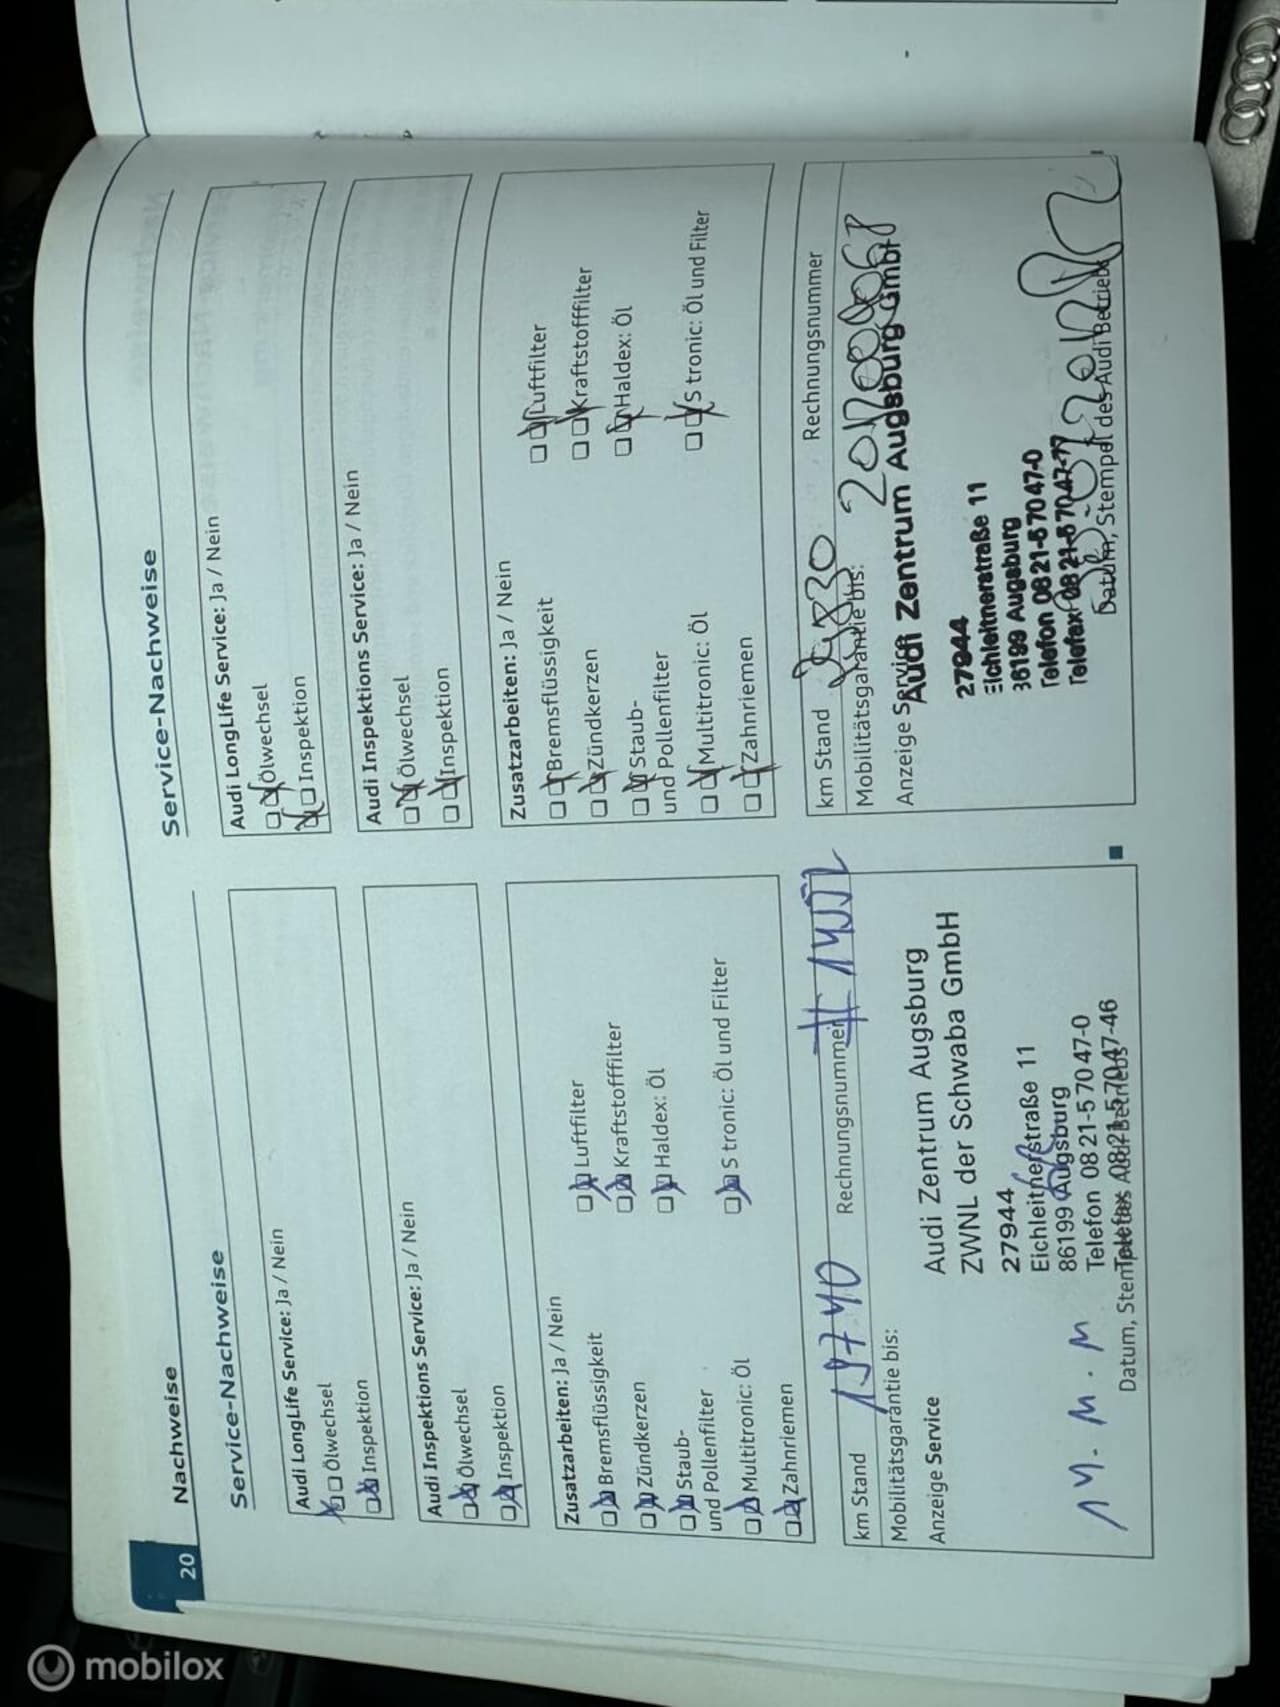 20
Nachweise
Service-Nachweise
Audi LongLife Service: Ja / Nein
Ölwechsel
Inspektion
Audi Inspektions Service: Ja / Nein
Ölwechsel
Inspektion
Zusatzarbeiten: Ja / Nein
Bremsflüssigkeit
Luftfilter
Zündkerzen
Kraftstofffilter
Staub-
und Pollenfilter
Haldex: Öl
Multitronic: Öl
S tronic: Öl und Filter
Zahnriemen
km Stand 19740 Rechnungsnummer # 14552
Mobilitätsgarantie bis:
Anzeige Service
Audi Zentrum Augsburg
ZWNL der Schwaba GmbH
27944
Eichleitnerstraße 11
86199 Augsburg
Telefon 08 21-5 70 47-0
Telefax 08 21-5 70 47-46
14. 11. 11
Datum, Stempel des Audi Betriebs
Service-Nachweise
Audi LongLife Service: Ja / Nein
Ölwechsel
Inspektion
Audi Inspektions Service: Ja / Nein
Ölwechsel
Inspektion
Zusatzarbeiten: Ja / Nein
Bremsflüssigkeit
Luftfilter
Zündkerzen
Kraftstofffilter
Staub-
und Pollenfilter
Haldex: Öl
Multitronic: Öl
S tronic: Öl und Filter
Zahnriemen
km Stand Rechnungsnummer
Mobilitätsgarantie bis:
Anzeige Service
Audi Zentrum Augsburg GmbH
27944
Eichleitnerstraße 11
86199 Augsburg
Telefon 08 21-5 70 47-0
Telefax 08 21-5 70 47-77
Datum, Stempel des Audi Betriebs
mobilox